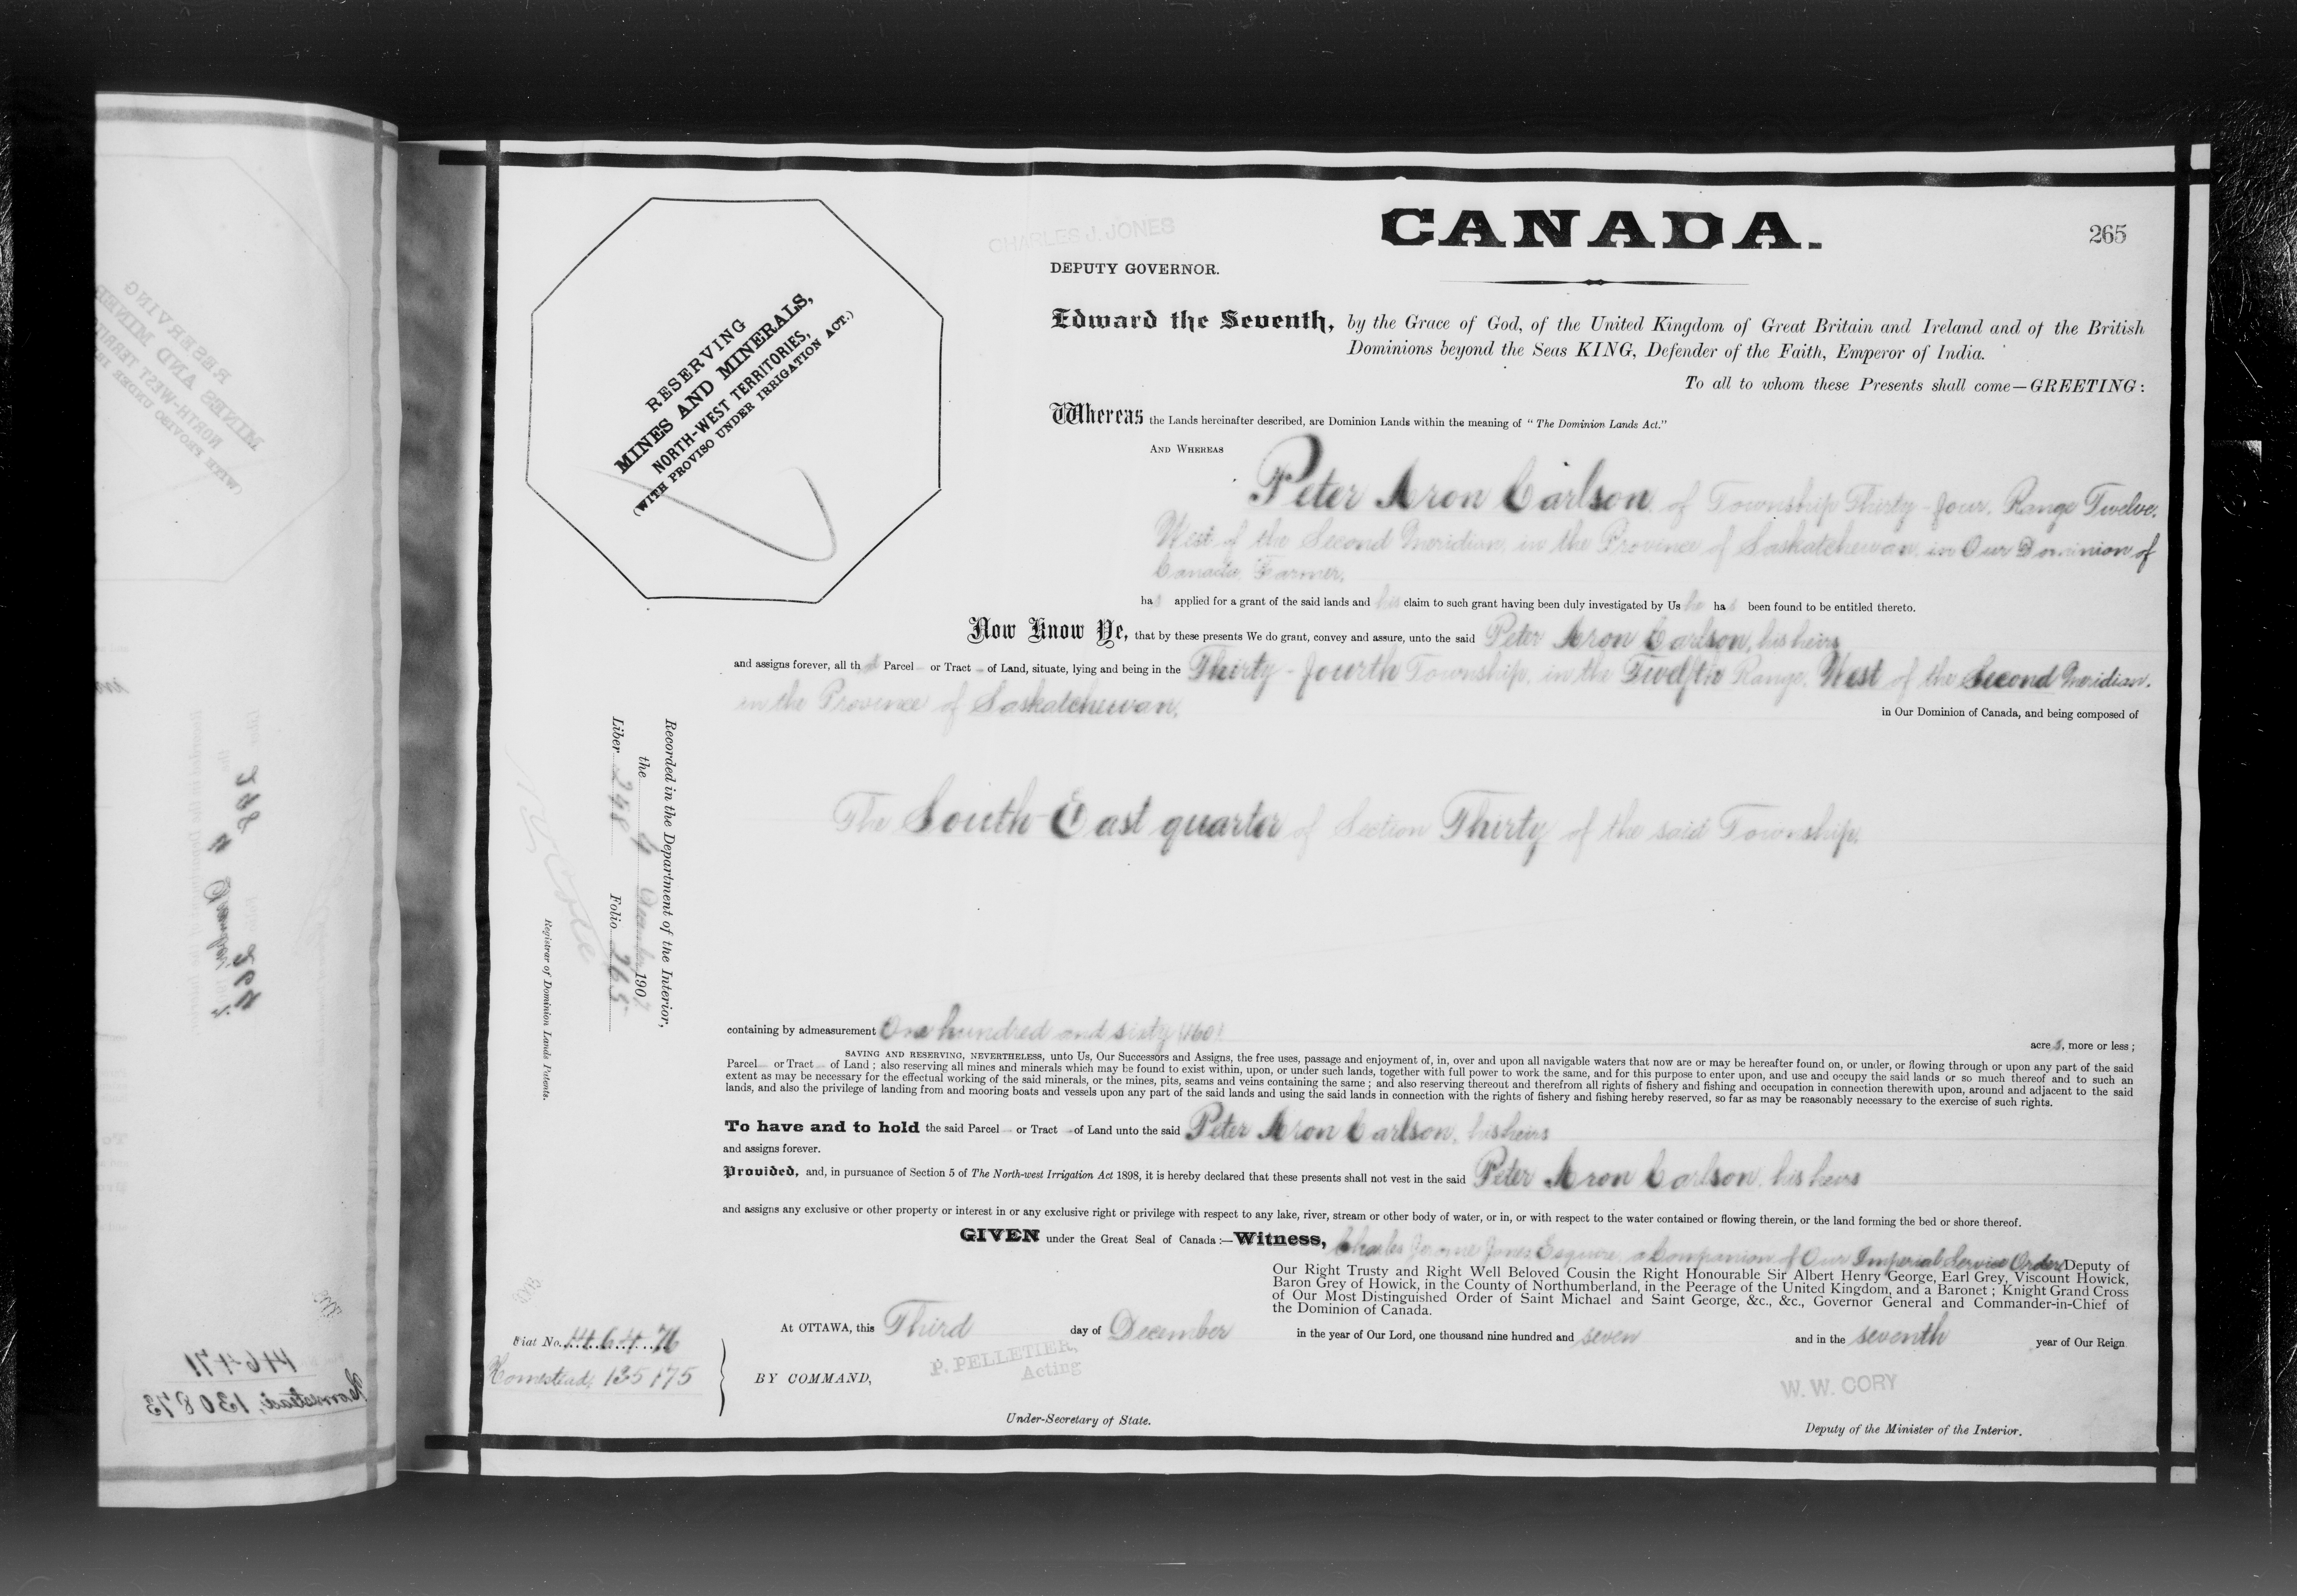 CANADA.
265
CHARLES J. JONES
DEPUTY GOVERNOR.
RESERVING
MINES AND MINERALS,
NORTH-WEST TERRITORIES,
(WITH PROVISO UNDER IRRIGATION ACT.)
Edward the Seventh, by the Grace of God, of the United Kingdom of Great Britain and Ireland and of the British
Dominions beyond the Seas KING, Defender of the Faith, Emperor of India.
To all to whom these Presents shall come—GREETING:
Whereas the Lands hereinafter described, are Dominion Lands within the meaning of "The Dominion Lands Act."
AND WHEREAS
Peter Aron Carlson, of Township Thirty-four, Range Twelve,
West of the Second Meridian, in the Province of Saskatchewan, in Our Dominion of
Canada, Farmer,
has applied for a grant of the said lands and his claim to such grant having been duly investigated by Us he has been found to be entitled thereto.
Now Know Ye, that by these presents We do grant, convey and assure, unto the said Peter Aron Carlson, his heirs
and assigns forever, all that Parcel or Tract of Land, situate, lying and being in the Thirty-fourth Township, in the Twelfth Range, West of the Second Meridian,
in the Province of Saskatchewan, in Our Dominion of Canada, and being composed of
The South East quarter of Section Thirty of the said Township,
Recorded in the Department of the Interior,
the 4 December 1907
Liber 248 Folio 265
Registrar of Dominion Lands Patents.
containing by admeasurement One hundred and sixty (160) acres, more or less;
SAVING AND RESERVING, NEVERTHELESS, unto Us, Our Successors and Assigns, the free uses, passage and enjoyment of, in, over and upon all navigable waters that now are or may be hereafter found on, or under, or flowing through or upon any part of the said
Parcel or Tract of Land; also reserving all mines and minerals which may be found to exist within, upon, or under such lands, together with full power to work the same, and for this purpose to enter upon, and use and occupy the said lands or so much thereof and to such an
extent as may be necessary for the effectual working of the said minerals, or the mines, pits, seams and veins containing the same; and also reserving thereout and therefrom all rights of fishery and fishing and occupation in connection therewith upon, around and adjacent to the said
lands, and also the privilege of landing from and mooring boats and vessels upon any part of the said lands and using the said lands in connection with the rights of fishery and fishing hereby reserved, so far as may be reasonably necessary to the exercise of such rights.
To have and to hold the said Parcel or Tract of Land unto the said Peter Aron Carlson, his heirs
and assigns forever.
Provided, and, in pursuance of Section 5 of The North-west Irrigation Act 1898, it is hereby declared that these presents shall not vest in the said Peter Aron Carlson, his heirs
and assigns any exclusive or other property or interest in or any exclusive right or privilege with respect to any lake, river, stream or other body of water, or in, or with respect to the water contained or flowing therein, or the land forming the bed or shore thereof.
GIVEN under the Great Seal of Canada:—Witness, Charles Jerome Jones Esquire, a Companion of Our Imperial Service Order Deputy of
Our Right Trusty and Right Well Beloved Cousin the Right Honourable Sir Albert Henry George, Earl Grey, Viscount Howick,
Baron Grey of Howick, in the County of Northumberland, in the Peerage of the United Kingdom, and a Baronet; Knight Grand Cross
of Our Most Distinguished Order of Saint Michael and Saint George, &c., &c., Governor General and Commander-in-Chief of
the Dominion of Canada.
At OTTAWA, this Third day of December in the year of Our Lord, one thousand nine hundred and seven and in the seventh year of Our Reign
Fiat No. 146476
Homestead, 135175
BY COMMAND,
P. PELLETIER,
Acting
Under-Secretary of State.
W. W. CORY
Deputy of the Minister of the Interior.
146471
Homestead, 130873